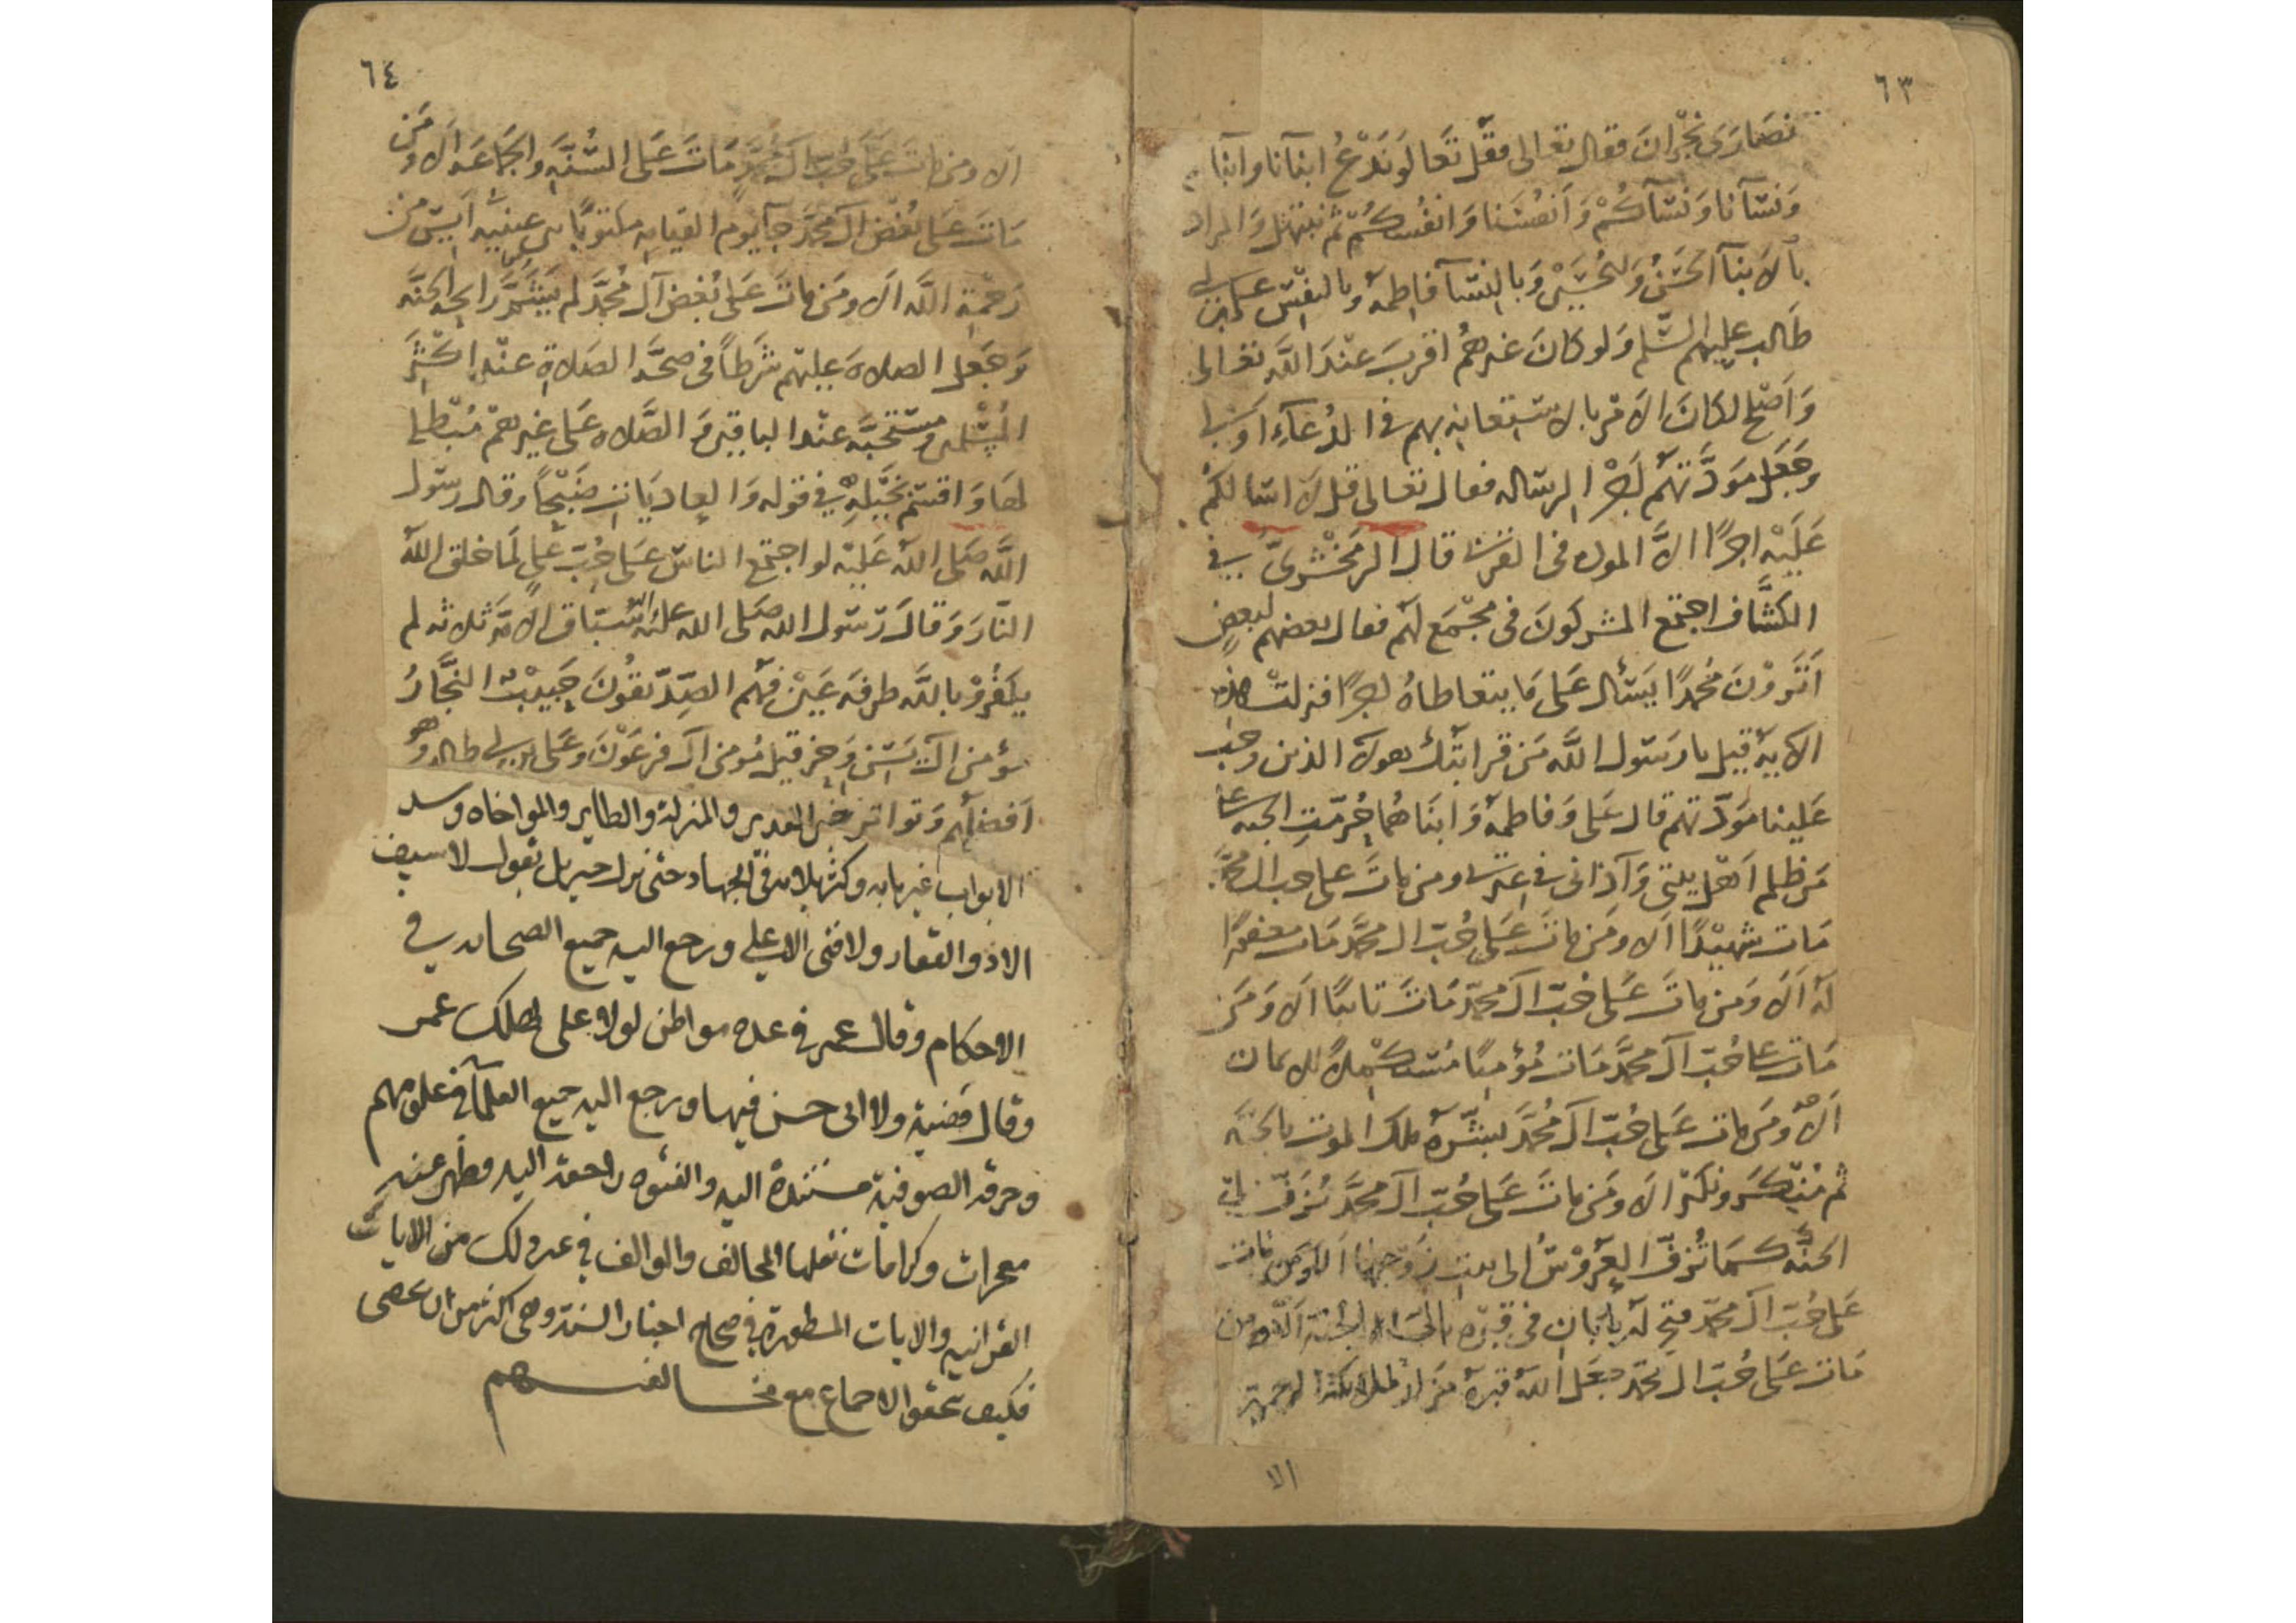 ٦٣
نصارى نجران فقال تعالى فقل تعالوا ندع ابنآنا وابنآ
ونسآنا ونسآكم وانفسنا وانفسكم ثم نبتهل والمراد
بالابنآ الحسن والحسين وبالنسآ فاطمه وبالنفس على بن ابى
طالب عليهم السلم ولو كان غيرهم اقرب عند الله تعالى
واصلح لكان الامر بالاستعانه بهم فى الدعآء اولى
وجعل مودتهم اجر الرساله فقال تعالى قل لا اسالكم
عليه اجرًا الا الموده فى القربى قال الزمخشرى فى
الكشاف اجتمع المشركون فى مجمع لهم فقال بعضهم لبعض
اترون محمدًا يسئال على ما يتعاطاه اجرًا فنزلت هذه
الاية قيل يا رسول الله من قرابتك هولآ الذين وجب
علينا مودتهم قال على وفاطمه وابناهما حرمت الجنه على
من ظلم اهل بيتى وآذانى فى عترتى ومن مات على حب ال محمد
مات شهيدًا الا ومن مات على حب ال محمد مات مغفورًا
له الا ومن مات على حب ال محمد مات تائبًا الا ومن
مات على حب ال محمد مات مؤمنًا مستكملاً للايمان
الا ومن مات على حب ال محمد بشره ملك الموت بالجنه
ثم منكر ونكير الا ومن مات على حب ال محمد يزف الى
الجنه كما تزف العروس الى بيت زوجها الا ومن مات
على حب ال محمد فتح له بابان فى قبره الى الجنه الا ومن
مات على حب ال محمد جعل الله قبره مزار لملائكة الرحمة
الا
٦٤
الا ومن مات على حب ال محمد مات على السنه والجماعه الا ومن
مات على بغض ال محمد جآ يوم القيامه مكتوبًا بين عينيه آيس من
رحمة الله الا ومن مات على بغض آل محمد لم يشم رايحه الجنه
وجعل الصلاه عليهم شرطًا فى صحه الصلاة عند اكثر
المسلمين ومستحبه عند الباقين والصلاه على غيرهم مبطله
لها واقسم بخيله فى قوله والعاديات ضبحًا وقال رسول
الله صلى الله عليه لو اجتمع الناس على حب على لما خلق الله
النار وقال رسول الله صلى الله عليه واله سباق الامه ثلاثه لم
يكفروا بالله طرفه عين فهم الصديقون حبيب النجار
مؤمن ال يسن وحزقيل مؤمن ال فرعون وعلى بن ابى طالب وهو
افضلهم وتواتر خبر الغدير والمنزلة والطاير والمواخاه وسد
الابواب غير بابه وكثر بلاوه فى الجهاد حتى نزل جبريل يقول لا سيف
الا ذو الفقار ولا فتى الا على ورجع اليه جميع الصحابه فى
الاحكام وقال عمر فى عده مواطن لولا على لهلك عمر
وقال قضية ولا ابى حسن فيها ورجع اليه جميع العلمآ فى علومهم
وخرقه الصوفية مستندة اليه والفتوه راجعة اليه وظهر عنه
معجزات وكرامات نقلها المخالف والموالف فى غير ذلك من الايات
القرانيه والايات المسطورة فى صحاح اخبار السنة وهى اكثر من ان تحصى
فكيف تحقق الاجماع مع مخالفتهم